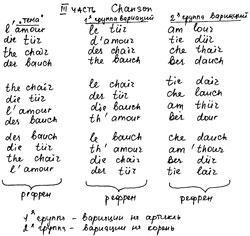 III часть Chanson
"тема" 1ª группа вариаций 2ª группа вариаций
l'amour le tür am lour
die tür d'amour tie dür
the chair des chair che thair
des bauch the bauch Ber dauch
the chair die bauch tie dair
die tür le chair che lauch
l'amour des tür am thür
des bauch th'amour Ber dour
des bauch le bauch che dauch
die tür th'amour am'thour
the chair die chair Ber dür
l'amour des tür tie lair
рефрен рефрен рефрен
1ª группа - вариации на артикль
2ª группа - вариации на корень